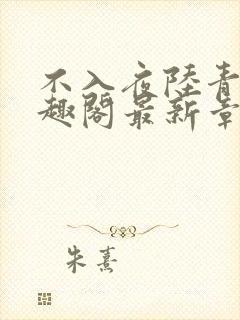 不入夜陸青
趣閣最新章
朱熹